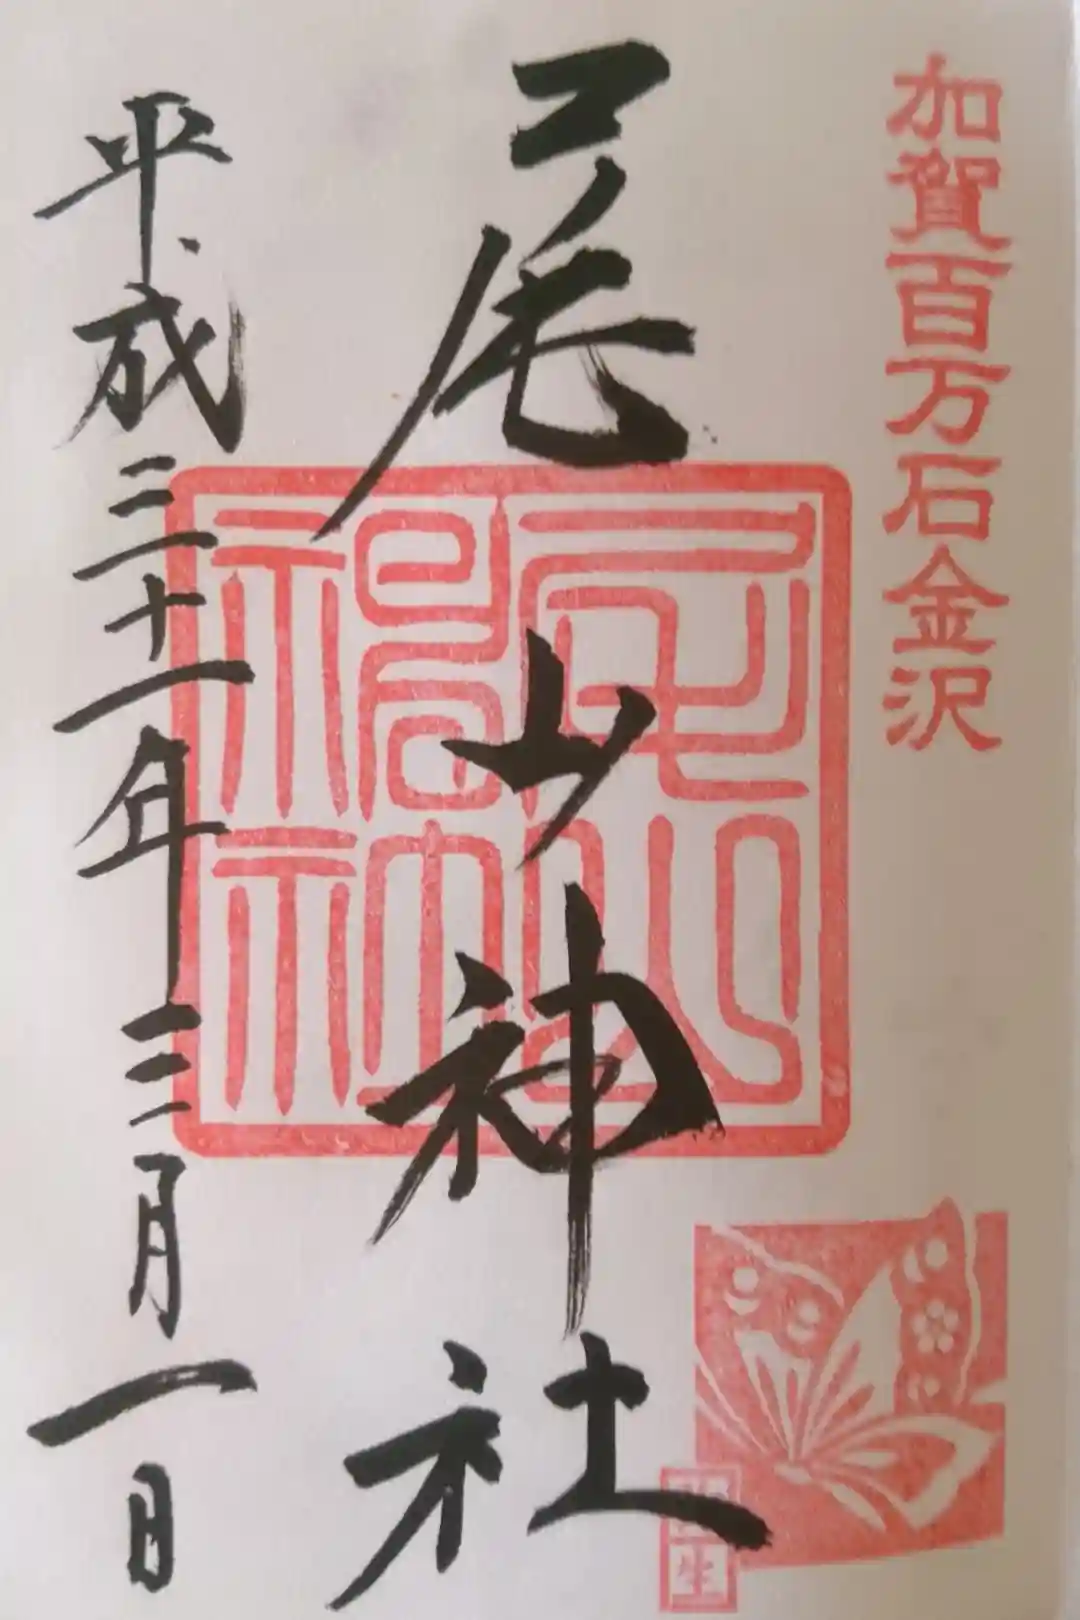 加賀百万石金沢
尾山神社
生
平成三十一年三月一日